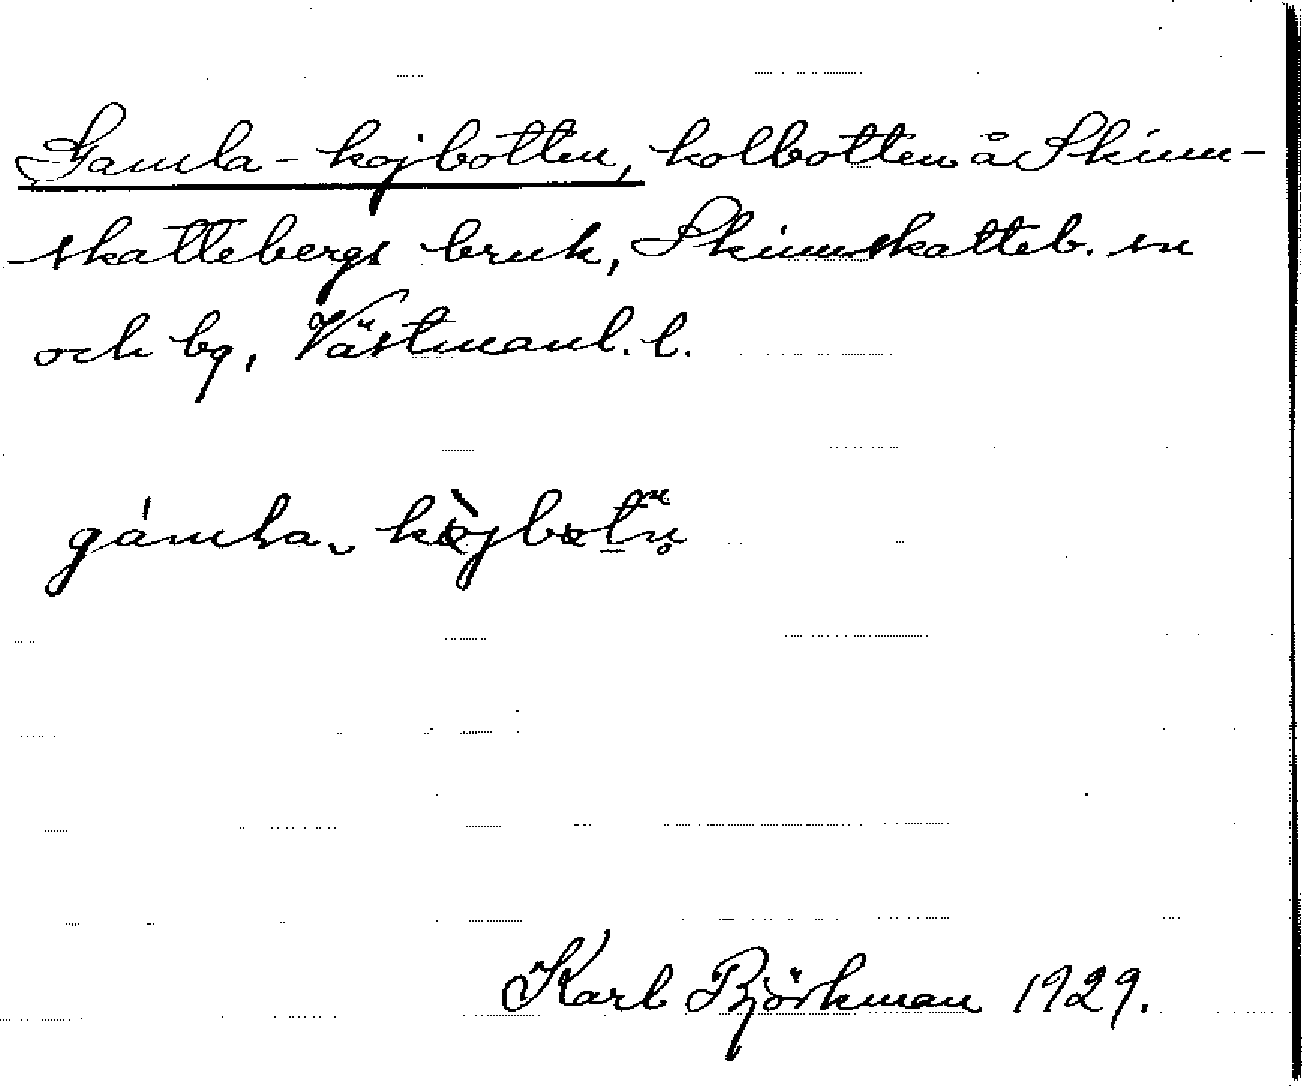 Gamla-kojbotten, kolbotten å Skinn-
skattebergs bruk, Skinnskatteb. sn
och bg, Västmanl. l.
Karl Björkman 1929.